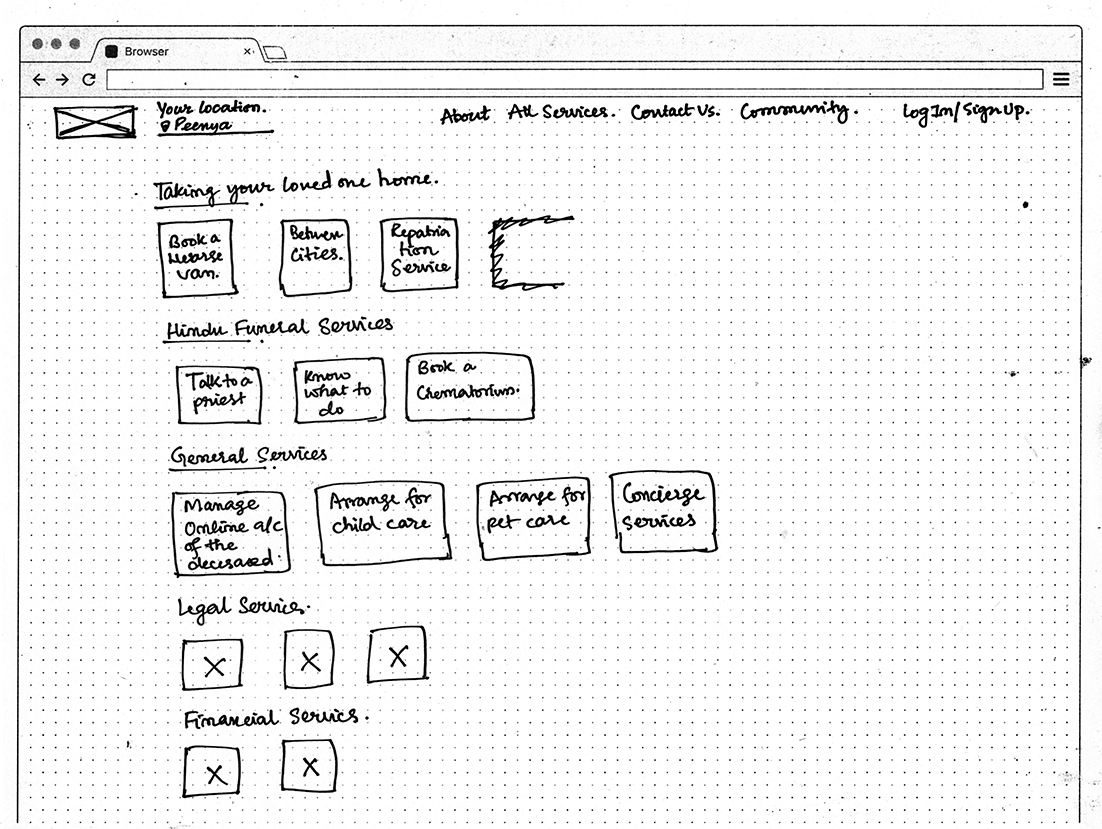 Browser
Your location.
Peenya
About All Services. Contact Us. Community. Log In/Sign Up.
Taking your loved one home.
Book a
Hearse
van.
Between
Cities.
Repatria
tion
Service
Hindu Funeral Services
Talk to a
priest
Know
what to
do
Book a
Crematorium.
General Services
Manage
Online a/c
of the
deceased.
Arrange for
child care
Arrange for
pet care
Concierge
Services
Legal Services.
Financial Services.